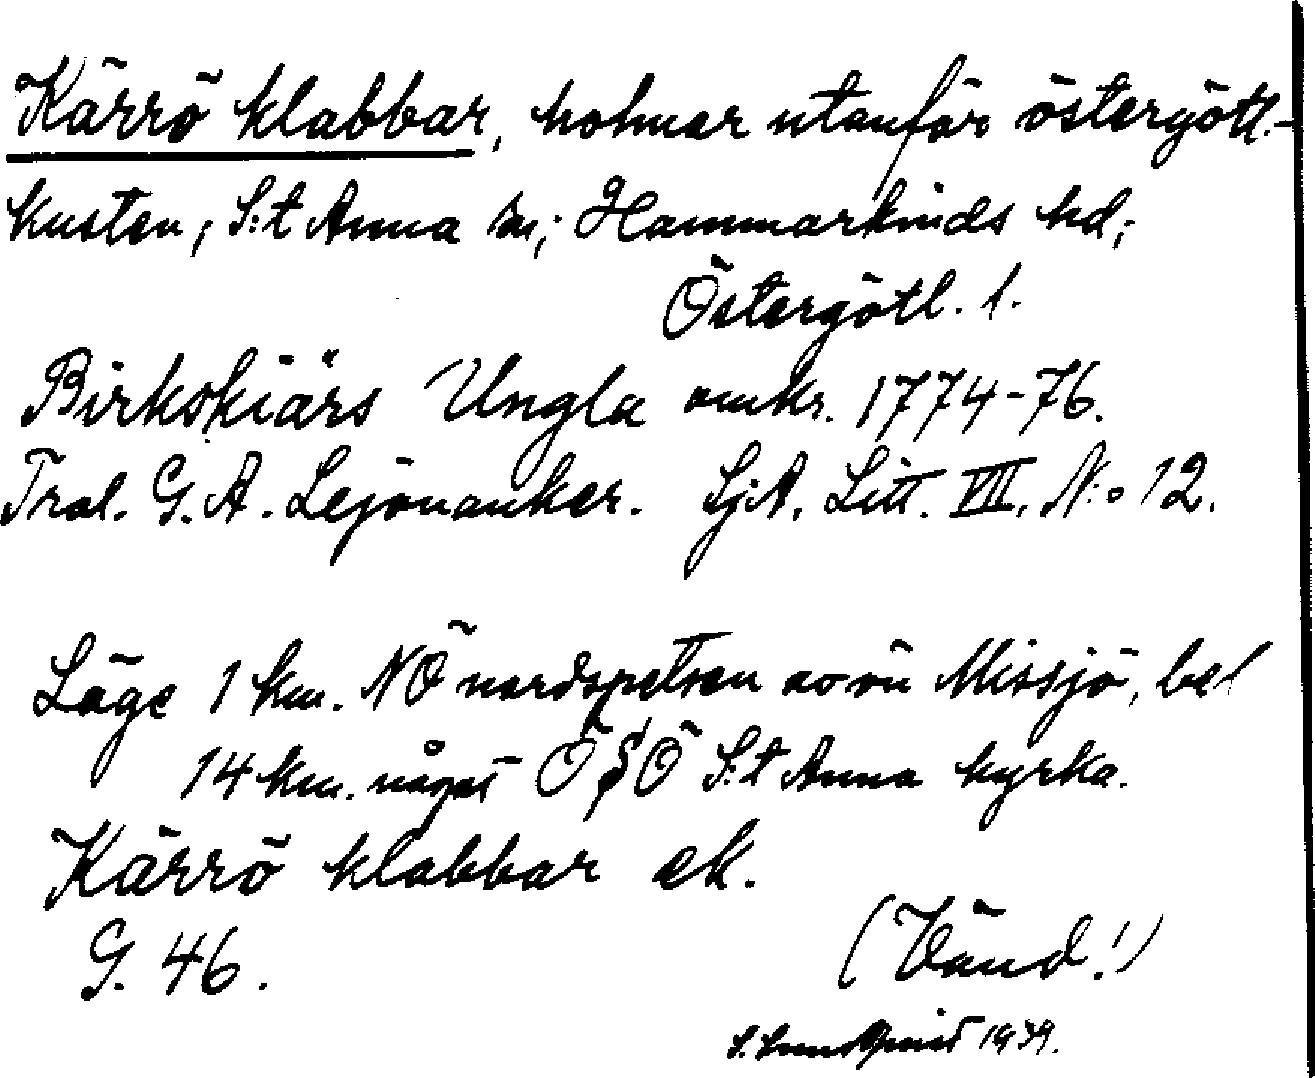 Kärrö klabbar, holmar utanför östergötl.-
kusten, S:t Anna sn; Hammarkinds hd;
Östergötl. l.
Birkskiärs Ungla omkr. 1774-76.
Trol. G. A. Lejonanker. Sj.A. Litt. VII. N:o 12.
Läge 1 km. NÖ nordspetsen av ön Missjö, bel
14 km. något ÖSÖ S:t Anna kyrka.
Kärrö klabbar ek.
G. 46.
(Vänd!)
S. Lundqvist 1939.